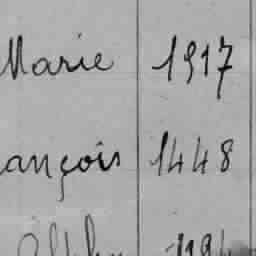 Marie 1917
ançois 1448